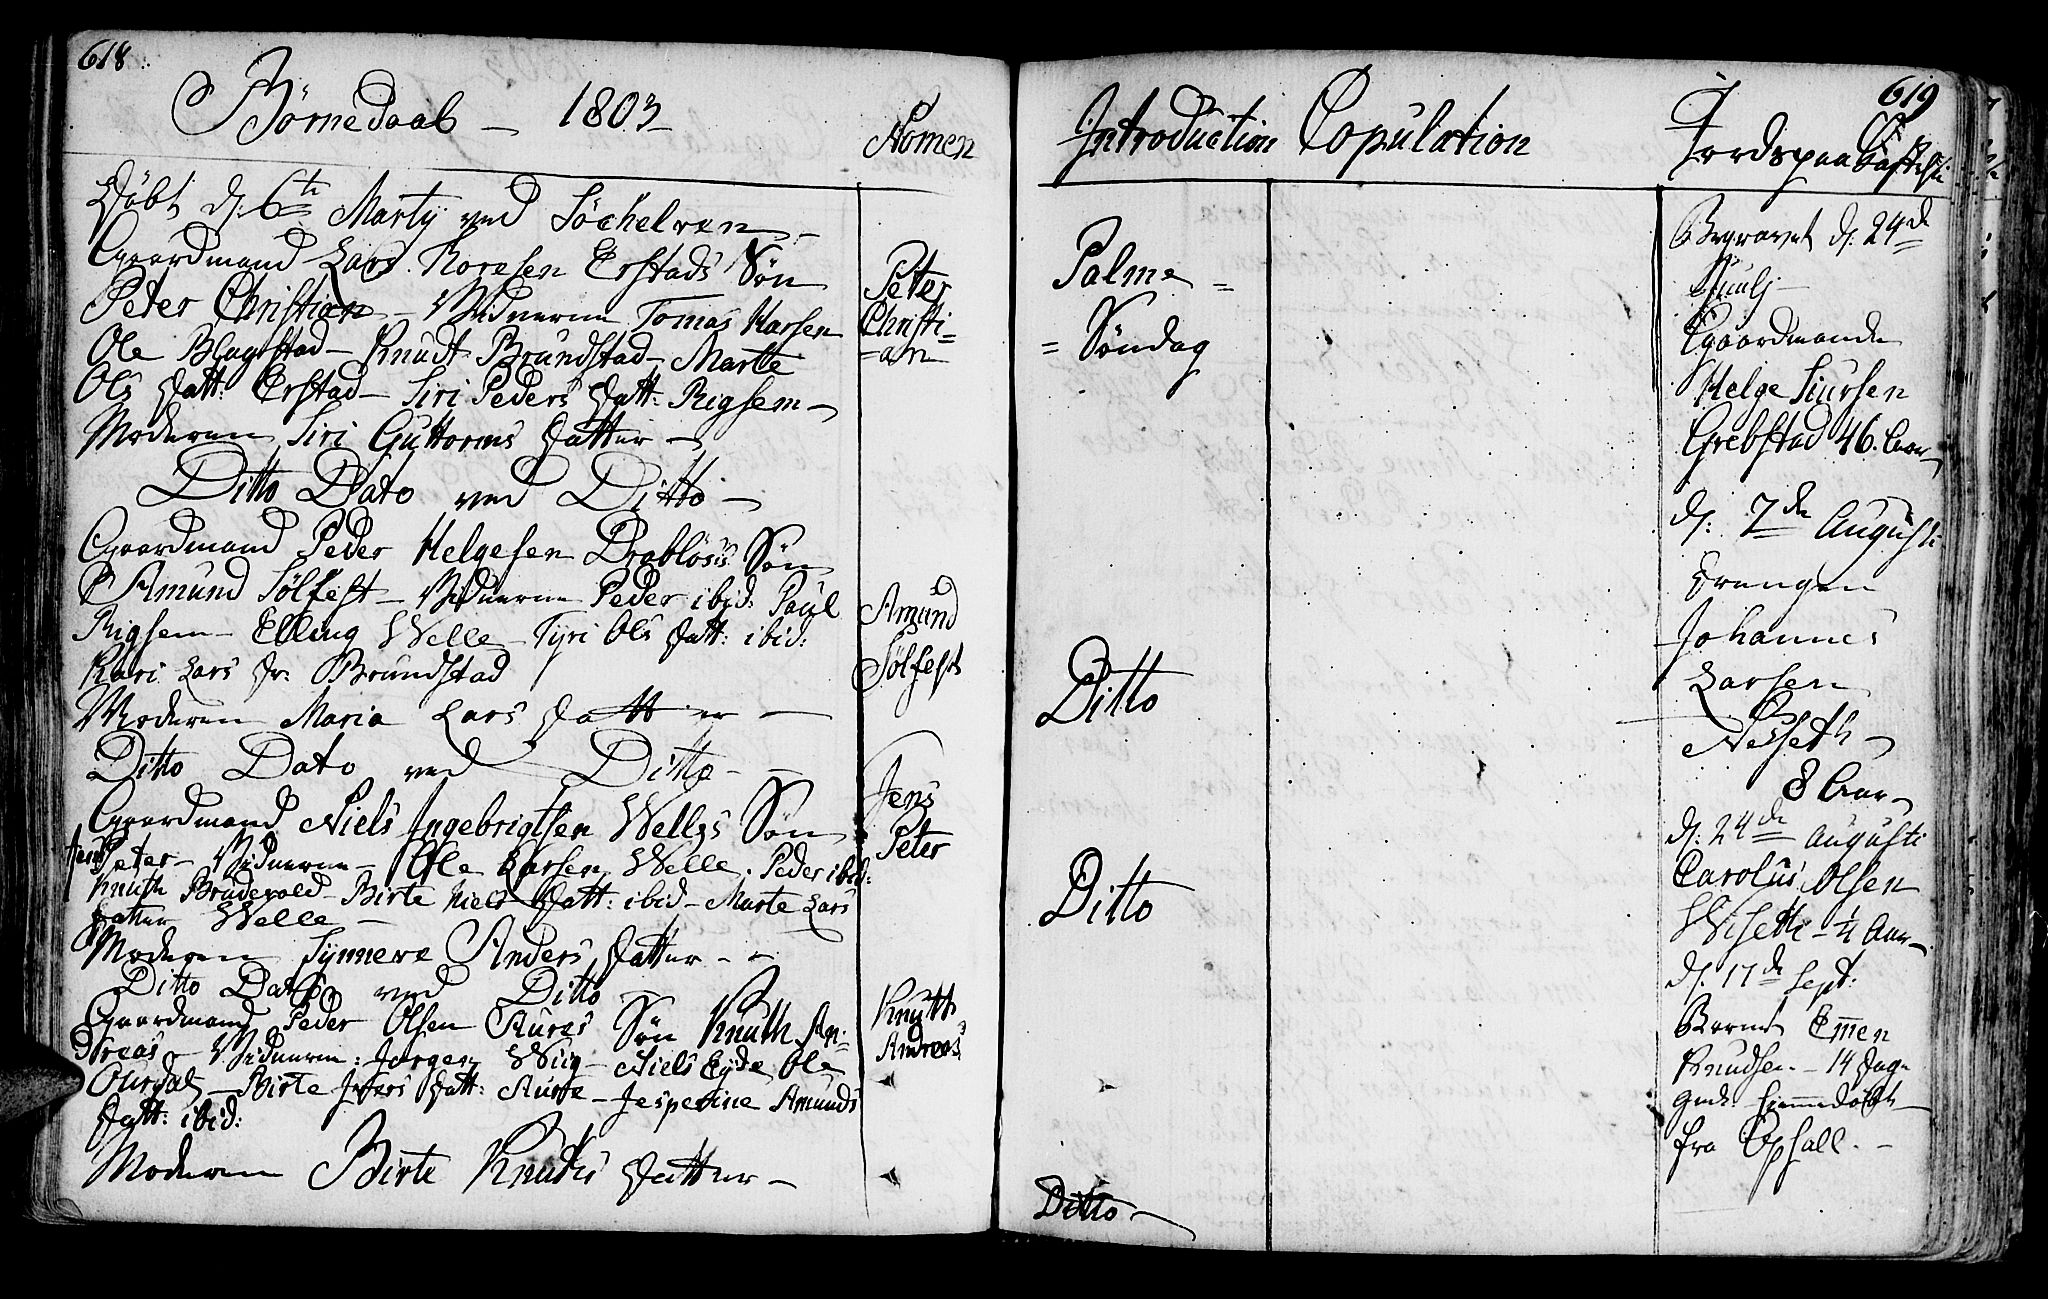 618.
Börnedaab – 1803
Nomen
Döbt d: 6te Martij ved Söchelven –
Gaardmand Lars Koresen Erstads Sön
Peter Christian – Vidnerne Tomas Karsen
Ole Blagstad – Knudt Brundstad – Marte
Ols Datt: Erstad – Siri Peders Datt: Rigsem –
Moderen Siri Guttorms Datter –
Peter
Christi=
=an
Ditto Dato ved Ditto –
Gaardmand Peder Helgesen Drablösis Sön
Amund Sölfest – Vidnerne Peder ibid: Paul
Rigsem – Elling Welle – Tyri Ols Datt: ibid:
Kari Lars Dr. Brundstad
Moderen Maria Lars Datter –
Amund
Sölfest
Ditto Dato ved Ditto –
Gaardmand Niels Ingebrigtsen Welles Sön
Jens Peter – Vidnerne – Ole Larsen Welle. Peder ibid:
Knuth Brudevold – Birte Niels Datt: ibid – Marte Lars
Datter Welle –
Moderen Synneve Anders Datter –
Jens
Peter
Ditto Dato ved Ditto
Gaardmand Peder Olsen Aures Sön Knuth An=
dreas – Vidnerne: Jörgen Wiig – Niels Eyde Ole
Ousdal – Birte Ivers Datt: Aure – Jesperine Amunds
Datt: ibid:
Moderen Birte Knuds Datter –
Knutt
Andreas
619
Introduction Copulation Jordspaakastelse
Palme =
= Söndag
Ditto
Ditto
Ditto –
Begravet d: 24de
Juulj –
Gaardmanden
Helge Siursen
Grebstad 46. Aar –
d: 7de Augusti
Drengen
Johannes
Larsen
Nesseth –
8 Aar –
d: 24de Augusti
Carolus Olsen
Wiseth – 4 Aar –
d. 17de Sept:
Barnet Emen
Knudsen. – 14 Dage
gml: hiemmedöbt
fra Opsall. –